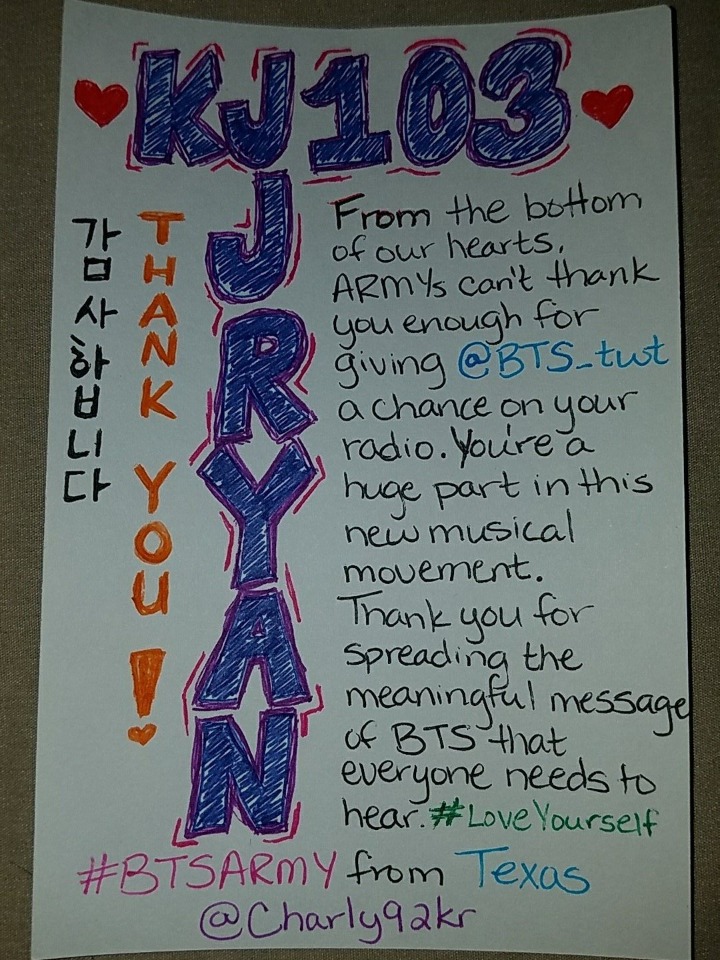 KJ103
감사합니다
THANK YOU!
JRYAN
From the bottom
of our hearts,
ARMYs can't thank
you enough for
giving @BTS_twt
a chance on your
radio. You're a
huge part in this
new musical
movement.
Thank you for
spreading the
meaningful message
of BTS that
everyone needs to
hear. #LoveYourself
#BTSARMY from Texas
@Charly92kr